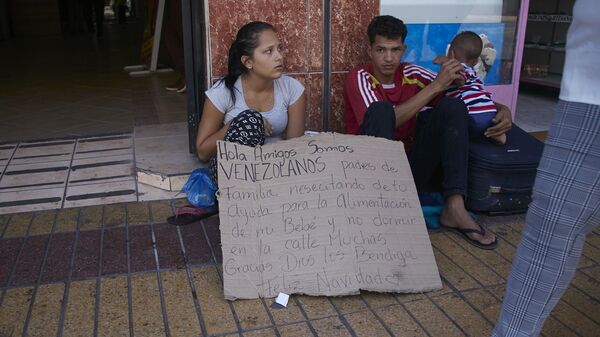 Hola Amigos Somos
VENEZOLANOS padres de
familia nesecitando de tu
Ayuda para la Alimentación
de mi Bebé y no dormir
en la calle Muchas
Gracias Dios los Bendiga
feliz Navidad